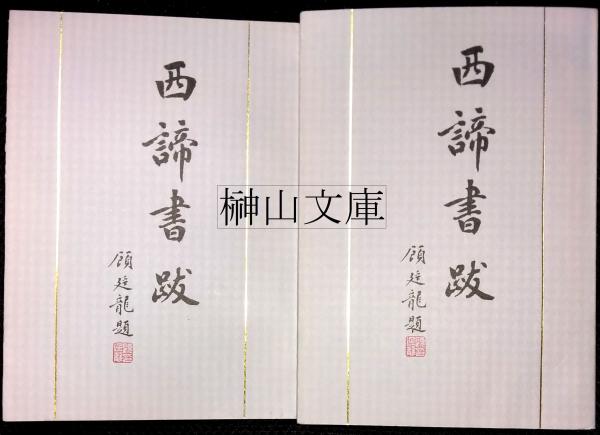 西諦書跋
顧廷龍題
榊山文庫
西諦書跋
顧廷龍題